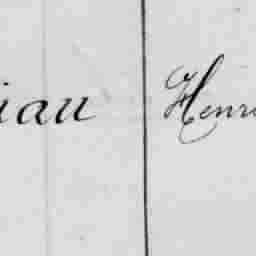 iau Henri